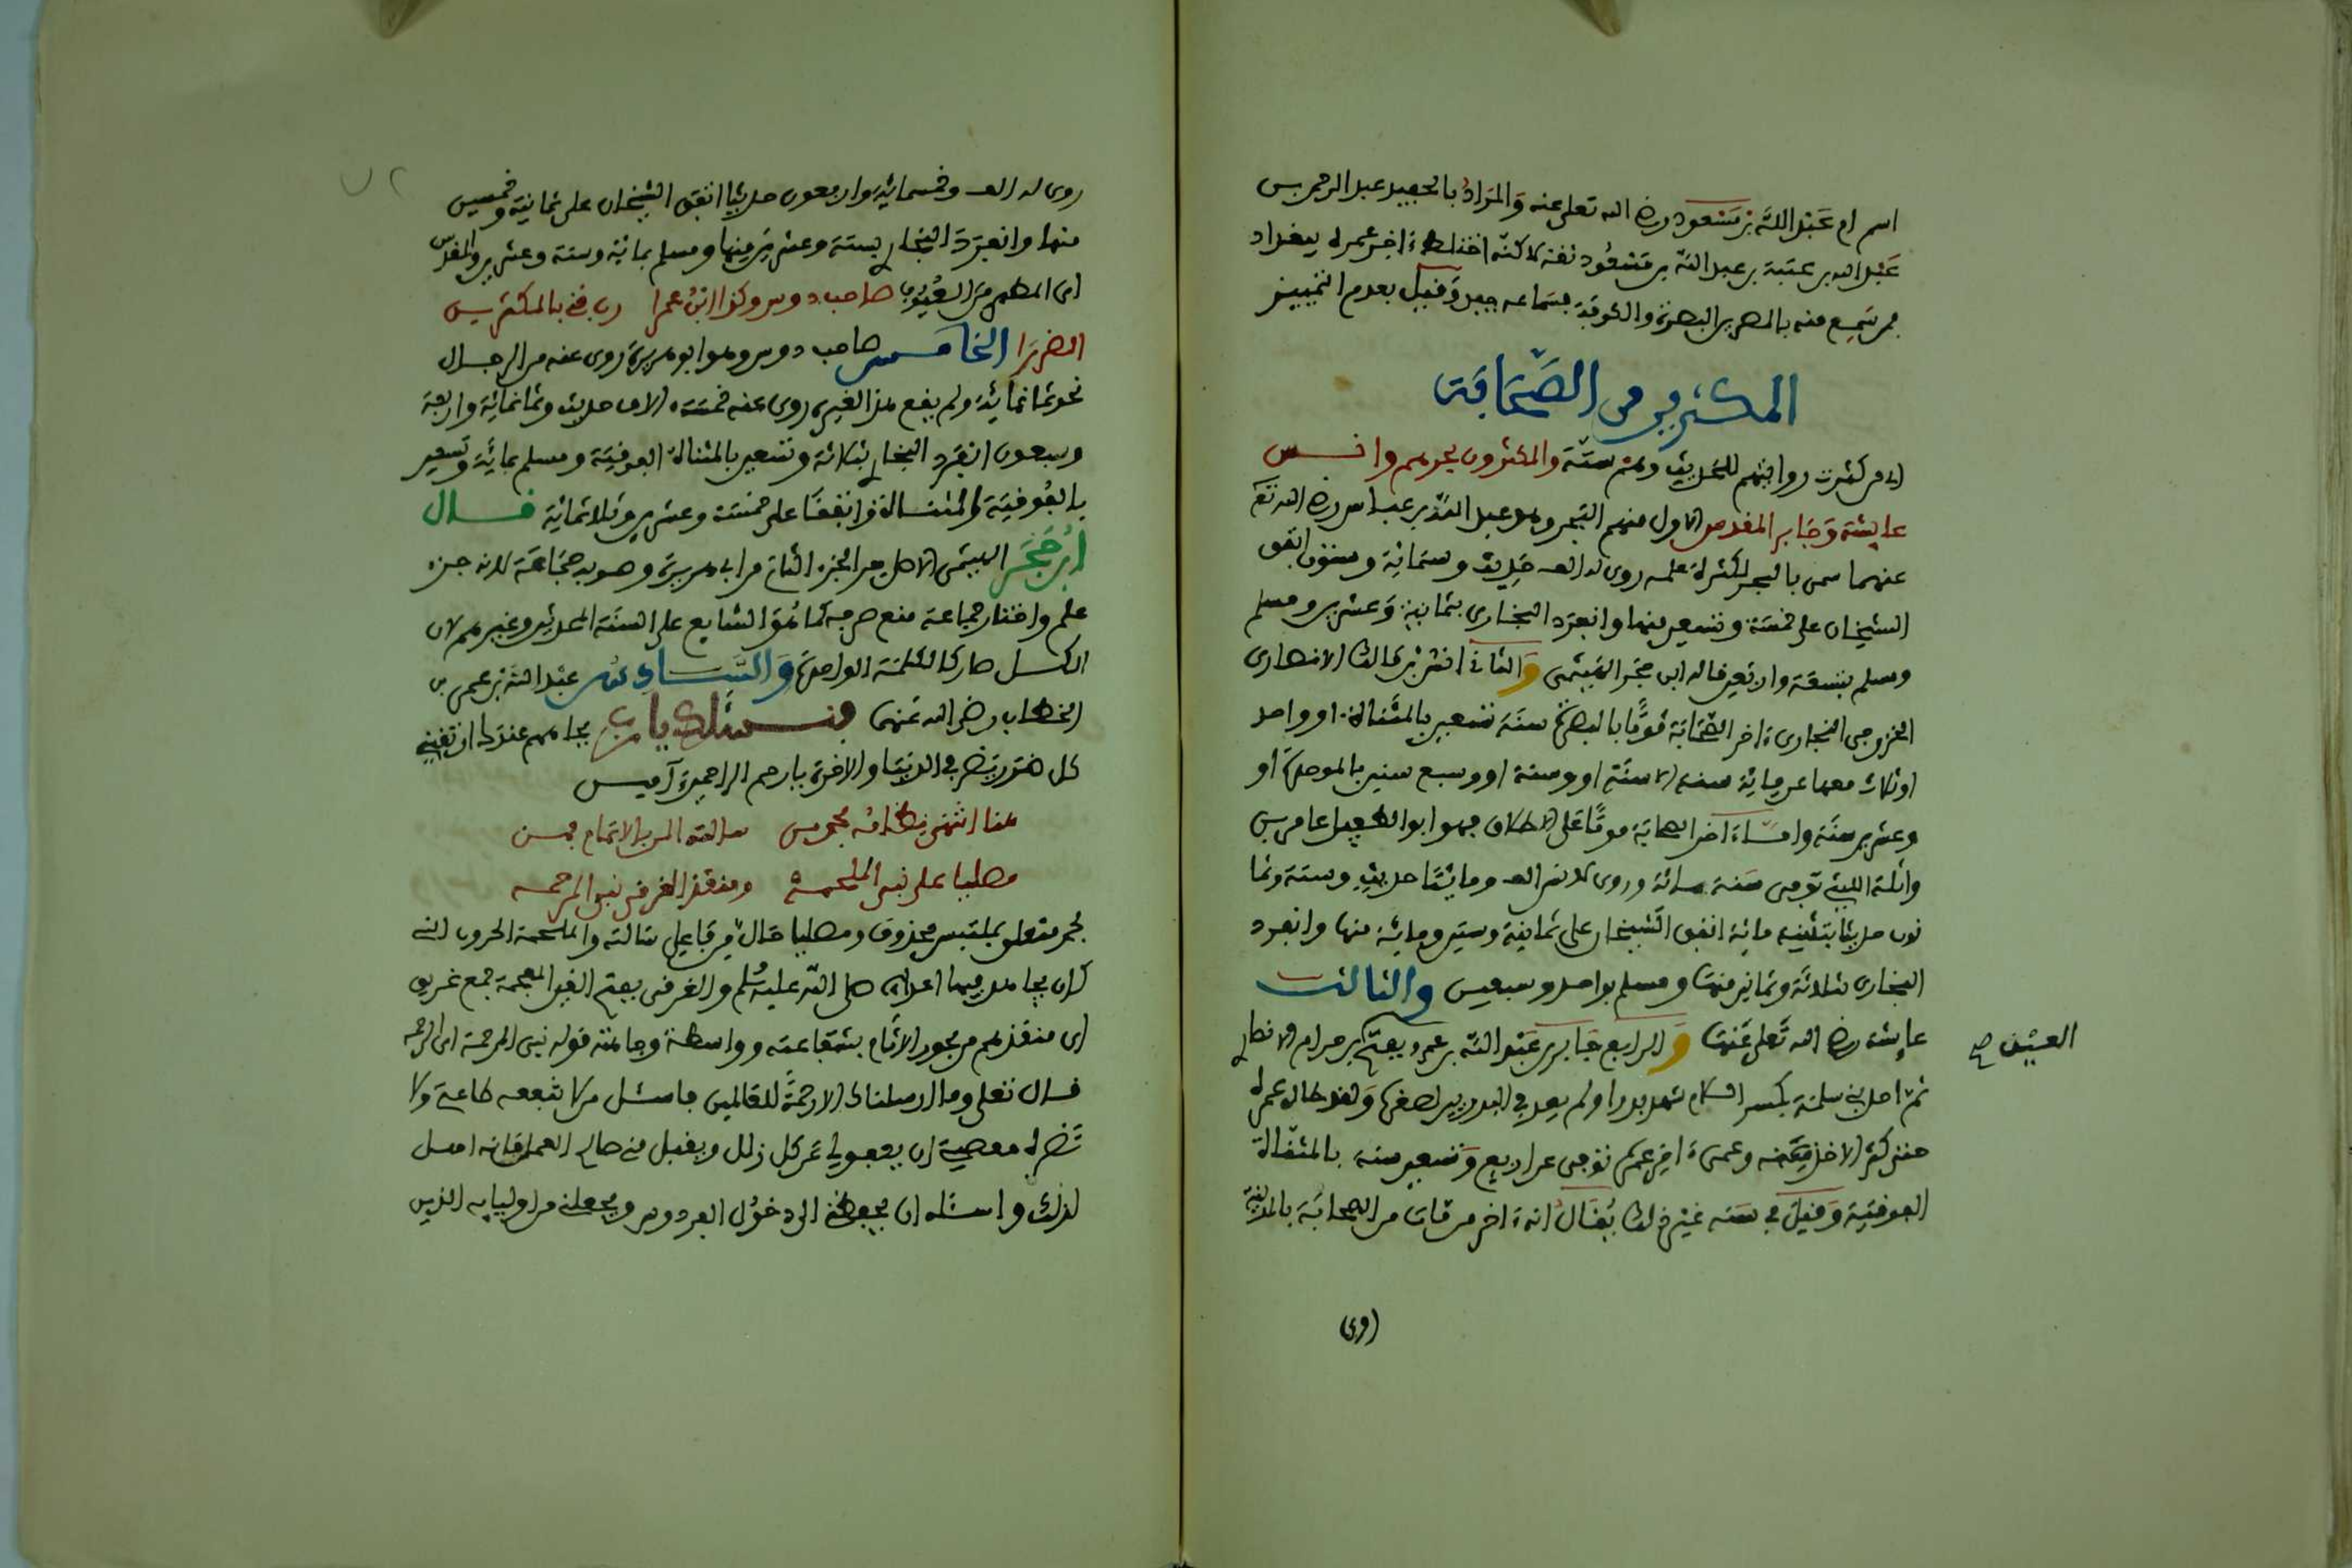 اسم ام عَبْد اللَّه بْن مَسْعود رضي الله تعلى عنه وَالمَرَادُ بالحفيد عبد الرحمن بن
عَبْد الله بن عتبة بن عبد الله بن مَسْعُود ثقة لاكنّه اختلط ءاخر عمره ببغداد
فمن سَمِع منه بالمصرين البصرة والكوفة فسَماعه جيد وَقيل بعدم التمييز
المكثرين من الصَّحَابَة
اي من كثرت روايتهم للحَديث وهم ستّة والمكثرون بحرهم وانس
عايشة وَجَابر المقدس الاول منهم البَحر وهو عبد اللّه بن عباس رضي الله تع
عنهما سمي بالبحر لكثرة علمه روى له الف حَديث وستمائة وستون اتفق
الشيخان على خمسَة وتسعين منها وانفرَد البخاري بثمانية وَعشرين ومسلم
ومسلم بتسعَة واربَعين قاله ابن حجَر الهَيْتمي وَالثاني انس بْن مَالك الانصاري
الخزرجي النجاري ءاخر الصَّحَابَة مَوتًا بالبصرَة سنَة تسعين بالمثناة او واحد
او ثلاث معها عن مِائة سنه الا سنَة او وسنة او وسبع سنين بالموحدَة او
وعشرين سنَة وامَّا ءاخر الصحابة موتًا عَلى الاطلاق فهو ابو الطفيل عامر بن
واثلة الليثي توفي سَنة مائة وروي لانس الف ومايتَا حديث وستة وثما
نون حديثا بتثنية مائة اتفق الشّيخان على ثمانية وستين ومائة منها وانفرد
البخاري بثلاثَة وثمانين منهَا ومسلم بواحد وسبعين والثالث
عايشة رضي الله تَعلى عَنهَا وَالرابع جَابر بن عَبْد اللّه بن عمرو بفتح بن حرام الانصاري
ثمّ احد بني سلمَة بكسر اللام شهد بدرا ولم يعد في البدريين لصغره وَلقد طال عمره
حتى كثر الاخذ عنه وعمي ءاخر عمره توفي عن اربع وَتسعين سنه بالمثنَّاة
الفوقيَّة وَقيل في سَنه غيْر ذلك يُقَالُ انه ءاخر من مَات من الصحابَة بالمدينة
العيش صح
(روى)
روى له الف وخمسمائة واربعون حديثا اتفق الشيخان على ثمانية وخمسين
منها وانفرَد البخاري بستة وعشرين منها ومسلم بمائة وستة وعشرين والمقدس
اي المطهر من العُيُوب صاحب دوس وكذا ابْنُ عمرا رب قني بالمكثرين
الضررَا الخامس صاحب دوس وهو ابو هريرة روى عنه من الرجال
نحو ثمانمائة ولم يقع هذا لغيره روي عنه خمسَة ءالاف حديث وثمانمائة واربعة
وسبعون انفرَد البخاري بثلاثة وتسعين بالمثناة الفوقيَة ومسلم بمايَة وتسعين
بالفُوقيَة والمثناة واتفقَا على خمسَة وعشرين وثلاثمائة قال
ابْن حَجَر الهيتمي الاصل جر الجزء الثاني من ابي هريرة وصوبه جمَاعَة لانه جزء
علم واختار جماعة منع صرفه كما هُو الشايع على السنَة المحدثين وغيرهم لان
الكل صار كالكلمة الواحدَة وَالسَّادس عبْد اللّه بْن عمر بن
الخطاب رضي الله عَنهمَا ونسئلك يا رب بجاههم عندك ان تقيني
كل ضرر يَضر في الدنيَا والاخرة يا ارحم الراحمين آميس
هنا انتهى نظامُه بحمد من سالته المن بالاتمام فمن
مصليا على نبي الملحمة ومنقذ الغرقى نبي المرحمه
بحمد متعلق بملتبس محذوف ومصليا حَالٌ من فاعل سَالته والملحمة الحروب التي
كان يجاهد فيها اعداءه صَلى اللّه عليه وسُلم والغرقى بفتح الغين المعجمة جمع غريق
اي منقذهم من بحور الاثَام بشفَاعته وواسطة وجاهته قوله نبي المرحمة اي الرحمه
قال تعلى وما ارسلناك الا رحمَةً للعَالمين فاسئل من لا تنفعه طاعة ولا
تَضره معصية ان يعفو لي عَن كل زلل ويقبل مني صالح العمل فانه اهل
لذلك واسئله ان يجعل لي دخوُل الفردوس ويجعلني من اوليايه الذين